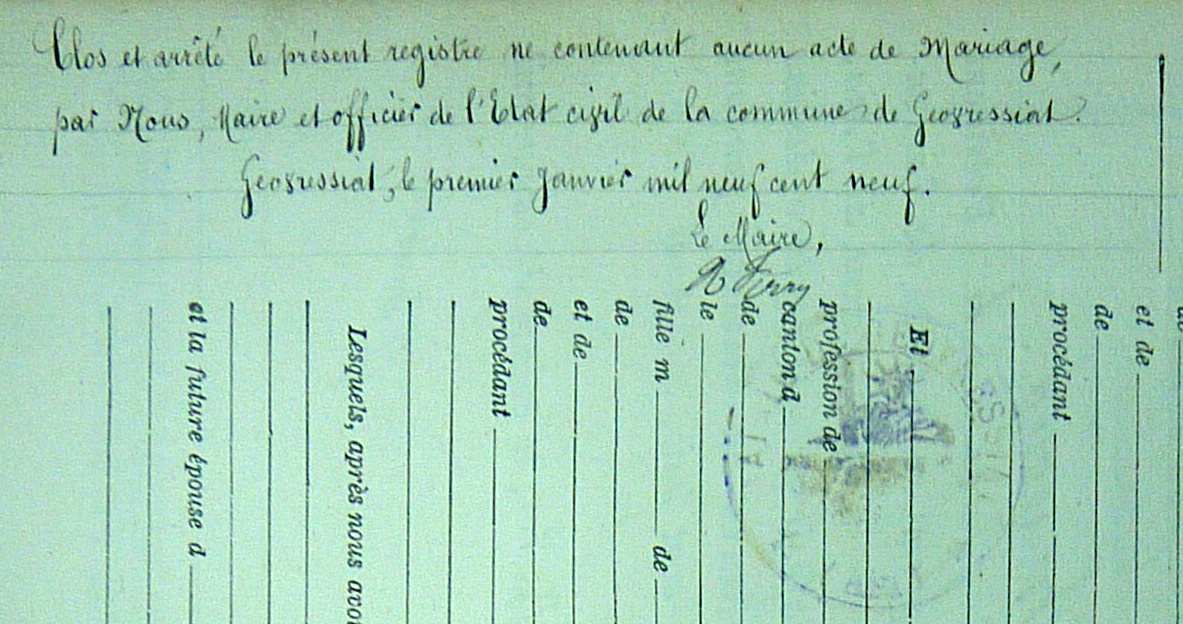 Clos et arrêté le présent registre ne contenant aucun acte de Mariage,
par Nous, Maire et officier de l'Etat civil de la commune de Geovressiat.
Geovressiat, le premier Janvier mil neuf cent neuf.
Le Maire,
Ferry
et de
de
procédant
Et
profession de
canton d
de
le
fille m de
de
et de
de
procédant
Lesquels, après nous avoi
et la future épouse d